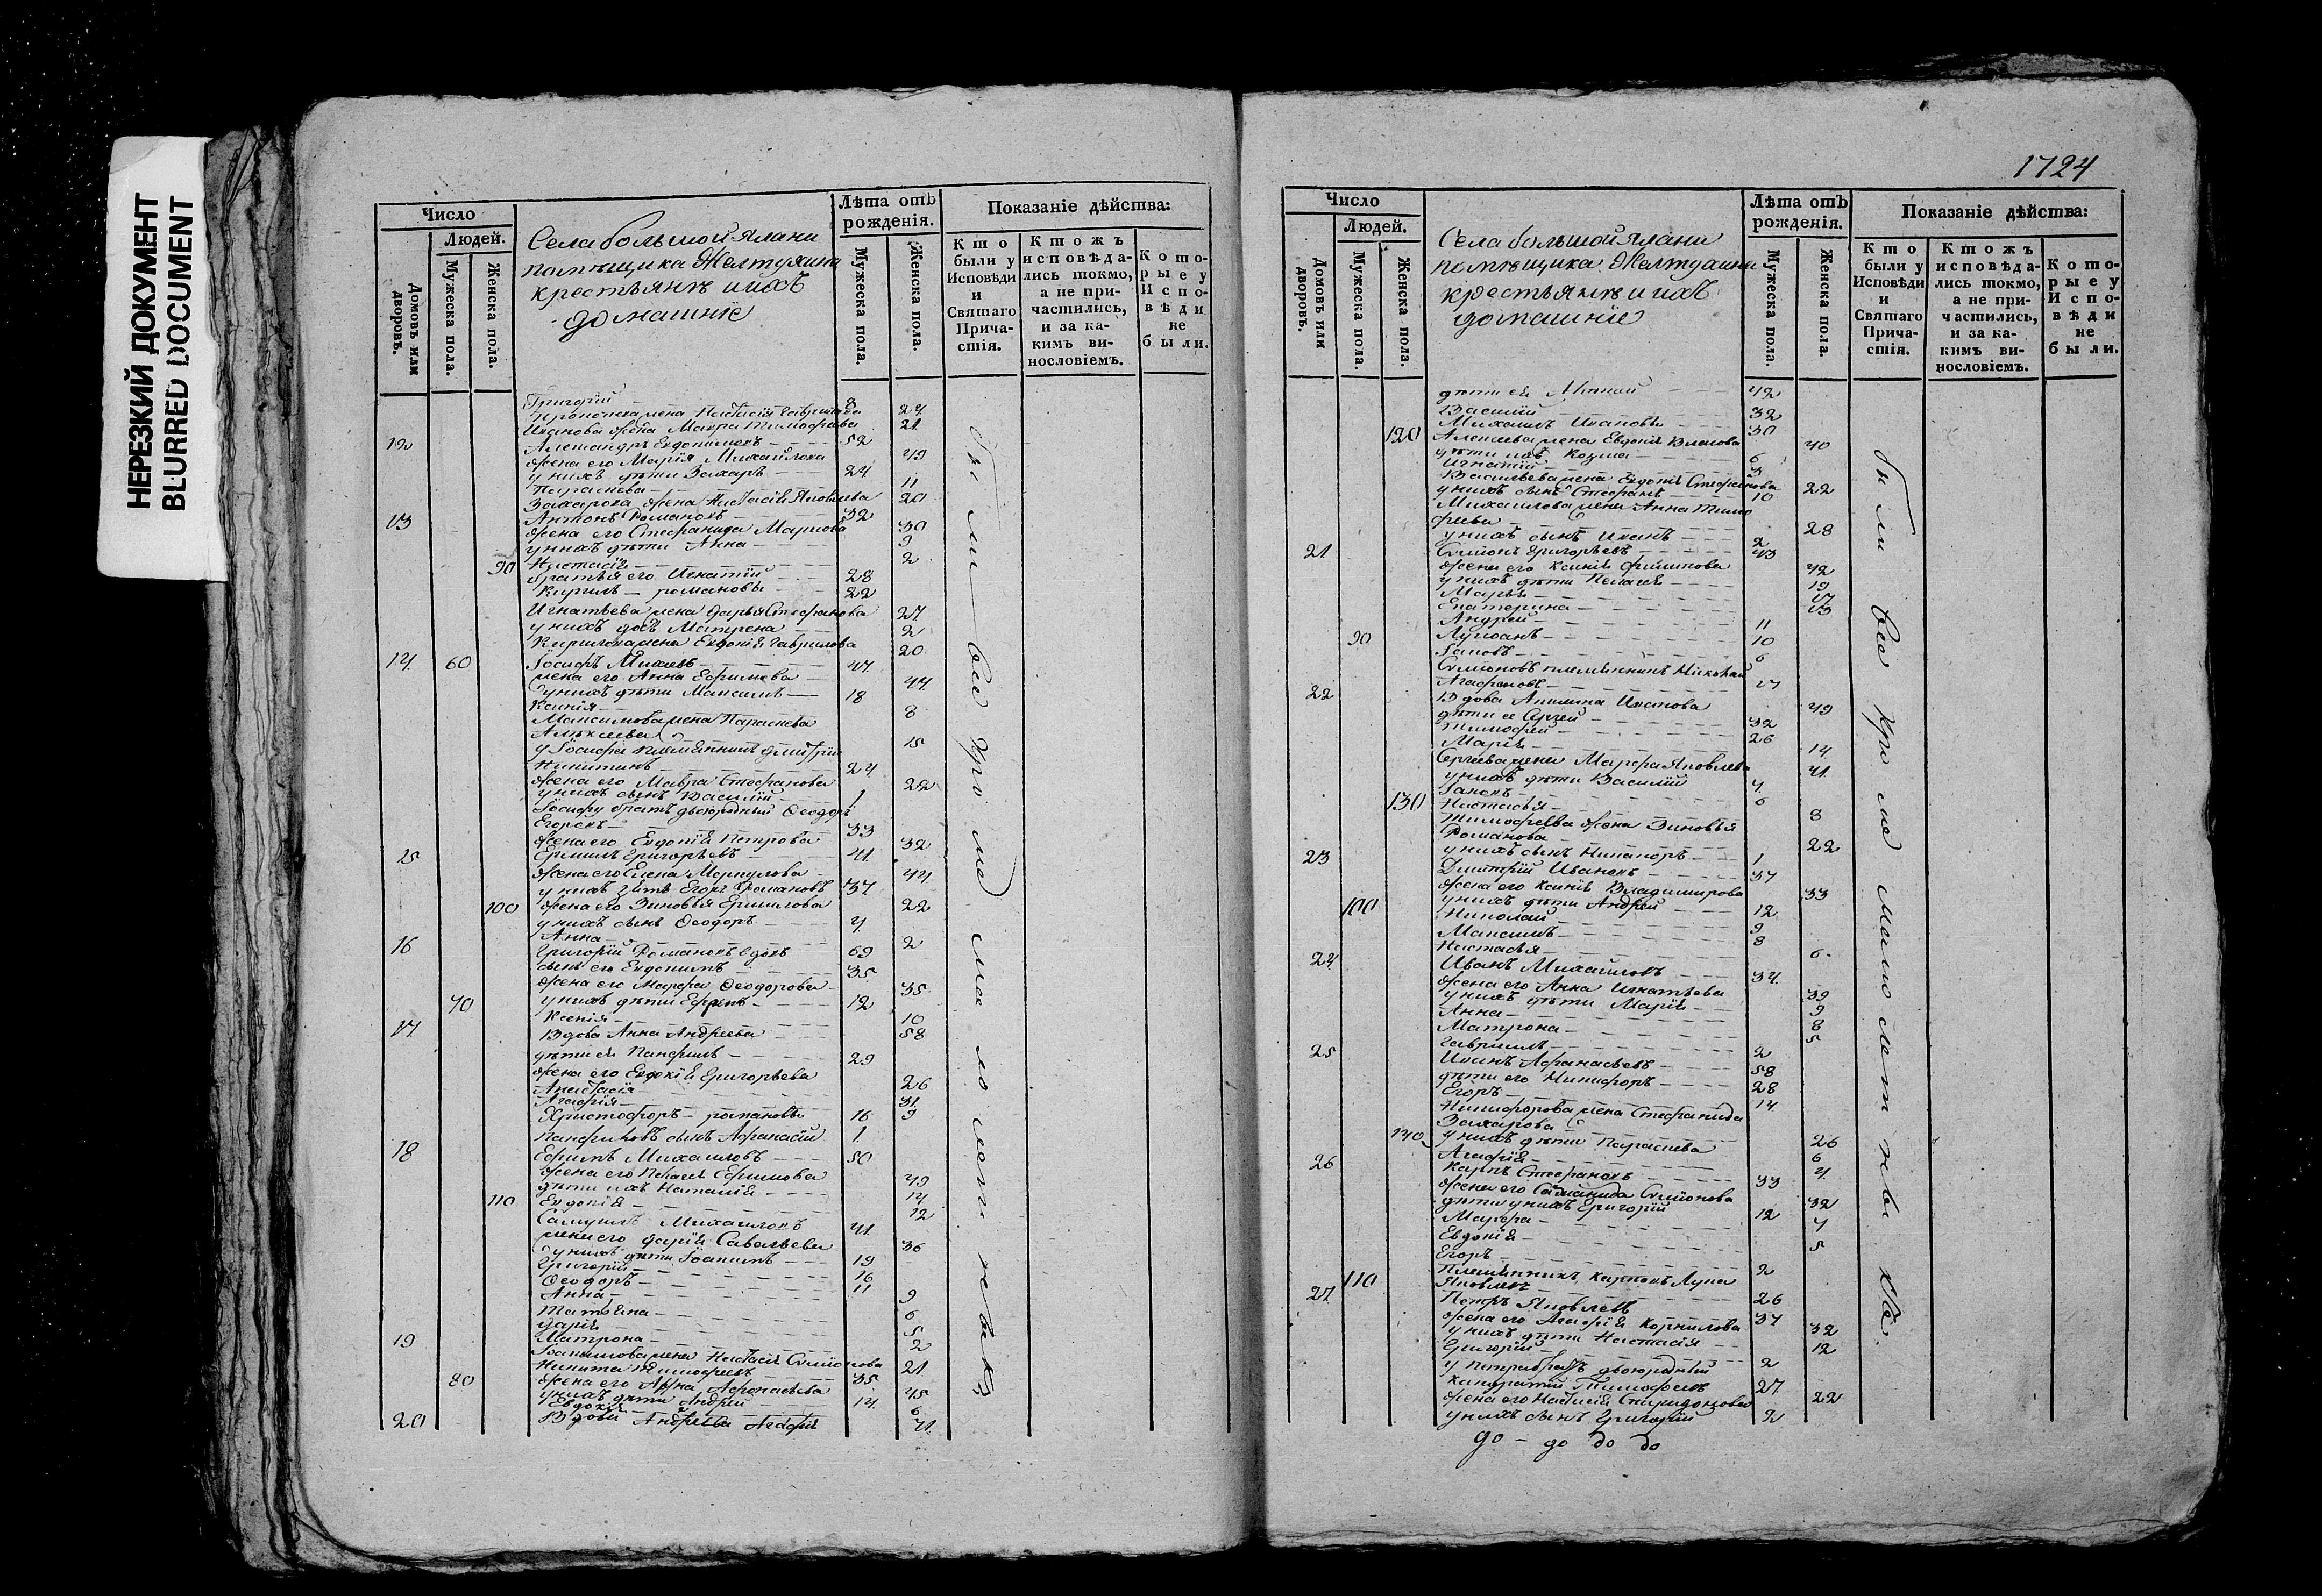 НЕРЕЗКИЙ ДОКУМЕНТ
BLURRED DOCUMENT
Число
Людей.
Домовъ или дворовъ.
Мужеска пола.
Женска пола.
Села большой Ялани
помѣщика Желтухина
крестьянѣ и ихъ
домашніе
Лѣта отъ рожденія.
Мужеска пола.
Женска пола.
Показаніе дѣйства:
Кто были у Исповѣди и Святаго Причастія.
Ктожъ исповѣдались токмо, а не причастились, и за какимъ винословіемъ.
Которые у Исповѣди не были.
Григорій 8
жена Настасія Гаврилова 24
Иванова жена Мавра Тимофеева 21
12 Александръ Евдокимовъ 52
жена его Марія Михайлова 49
у нихъ дѣти Захаръ 24
Параскева 11
Захарова жена Настасія Яковлева 20
13 Антонъ Романовъ 32
жена его Стефанида Маркова 30
у нихъ дѣти Анна 9
90 Настасія 2
братья его Игнатій 28
Кирилъ романовы 22
Игнатьева жена Дарья Стефанова 27
у нихъ дочь Матрена 2
Кирилова жена Евдокія Гаврилова 20
14 60 Іосифъ Михеевъ 47
жена его Анна Ефимова 44
у нихъ дѣти Максимъ 18
Ксенія 8
Максимова жена Параскева
Алексеева 15
у Іосифа племянникъ Дмитрій
Никитинъ 24
жена его Мавра Стефанова 22
у нихъ сынъ Василій 1
Іосифу братъ двоюродный Феодоръ
Егоровъ 33
жена его Евдокія Петрова 32
15 Ермилъ Григорьевъ 41
жена его Елена Меркулова 44
у нихъ зять Егоръ Романовъ 37
100 жена его Зиновья Ермилова 22
у нихъ сынъ Феодоръ 4
Анна 2
16 Григорій Романовъ вдовъ 69
сынъ его Евдокимъ 35
жена его Марфа Феодорова 35
70 у нихъ дѣти Ефремъ 12
Ксенія 10
17 Вдова Анна Андреева 58
дѣти ея Панфилъ 29
жена его Евдокія Григорьева 26
Анастасія 31
Агафія 9
Христофоръ романовы 16
Панфиловъ сынъ Афанасій 1
18 Ефимъ Михаиловъ 50
жена его Пелагея Ефимова 49
дѣти ихъ Наталія 14
110 Евдокія 12
Самуилъ Михаиловъ 41
жена его Дарія Савельева 36
у нихъ дѣти Іоакимъ 19
Григорій 16
Феодоръ 11
Анна 9
Татьяна 6
Дарія 5
Матрона 2
Іоакимова жена Настасія Симіонова 21
19 Никита Тимофеевъ 35
80 жена его Анна Афонасьева 45
у нихъ дѣти Андрей 14
Евдокія 6
20 Вдова Андреева Агафія 71
были все кроме малолетнева
1724
Число
Людей.
Домовъ или дворовъ.
Мужеска пола.
Женска пола.
Села большой Ялани
помѣщика Желтухина
крестьянѣ и ихъ
домашніе
Лѣта отъ рожденія.
Мужеска пола.
Женска пола.
Показаніе дѣйства:
Кто были у Исповѣди и Святаго Причастія.
Ктожъ исповѣдались токмо, а не причастились, и за какимъ винословіемъ.
Которые у Исповѣди не были.
дѣти ея 42
Василій 32
Михаилъ Ивановы 30
120 Алексеева жена Евдокія Власова 40
дѣти ихъ Козма 6
Игнатій 3
Васильева жена Евдокія Стефанова 22
у нихъ сынъ Стефанъ 10
Михаилова жена Анна Тимо
феева 28
у нихъ сынъ Иванъ 2
21 Симіонъ Григорьевъ 43
жена его Ксенія Филипова 42
у нихъ дѣти Пелагея 19
Марья 17
Екатерина 13
Андрей 11
90 Лукіанъ 10
Іаковъ 6
Симіоновъ племянникъ Николай
Агафоновъ 17
22 Вдова Акилина Иванова 49
дѣти ее Сергей 32
Тимофей 26
Марія 14
Сергеева жена Марфа Яковлева 41
у нихъ дѣти Василій 4
Іаковъ 6
130 Настасья 8
Тимофеева жена Зиновья
Романова 22
у нихъ сынъ Никаноръ 1
23 Дмитрій Ивановъ 37
жена его Ксенія Владимирова 33
у нихъ дѣти Андрей 12
100 Николай 9
Максимъ 8
Настасья 6
24 Иванъ Михаиловъ 34
жена его Анна Игнатьева 39
у нихъ дѣти Марія 9
Анна 8
Матрона 5
Гавриилъ 2
25 Иванъ Афанасьевъ 58
дѣти его Никифоръ 28
Егоръ 14
Никифорова жена Стефанида
Захарова 26
140 у нихъ дѣти Параскева 6
Агафія 4
26 Карпъ Стефановъ 33
жена его Симіонова 32
дѣти у нихъ Григорій 12
Марфа 7
Евдокія 5
Егоръ 2
110 Племянникъ Карповъ Лука
Яковлевъ 26
27 Петръ Яковлевъ 37
жена его Агафія Корнилова 32
у нихъ дѣти Настасія 12
Григорій 2
у Петра братъ двоюродный
Тимофеевъ 27
жена его Настасія Спиридонова 22
у нихъ сынъ Григорій 2
до до до до
были все кроме малолетнева